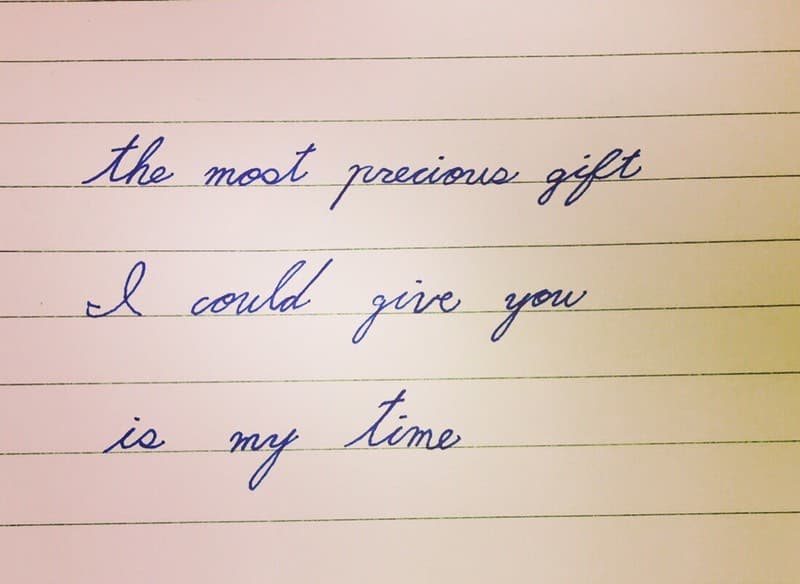 the most precious gift
I could give you
is my time